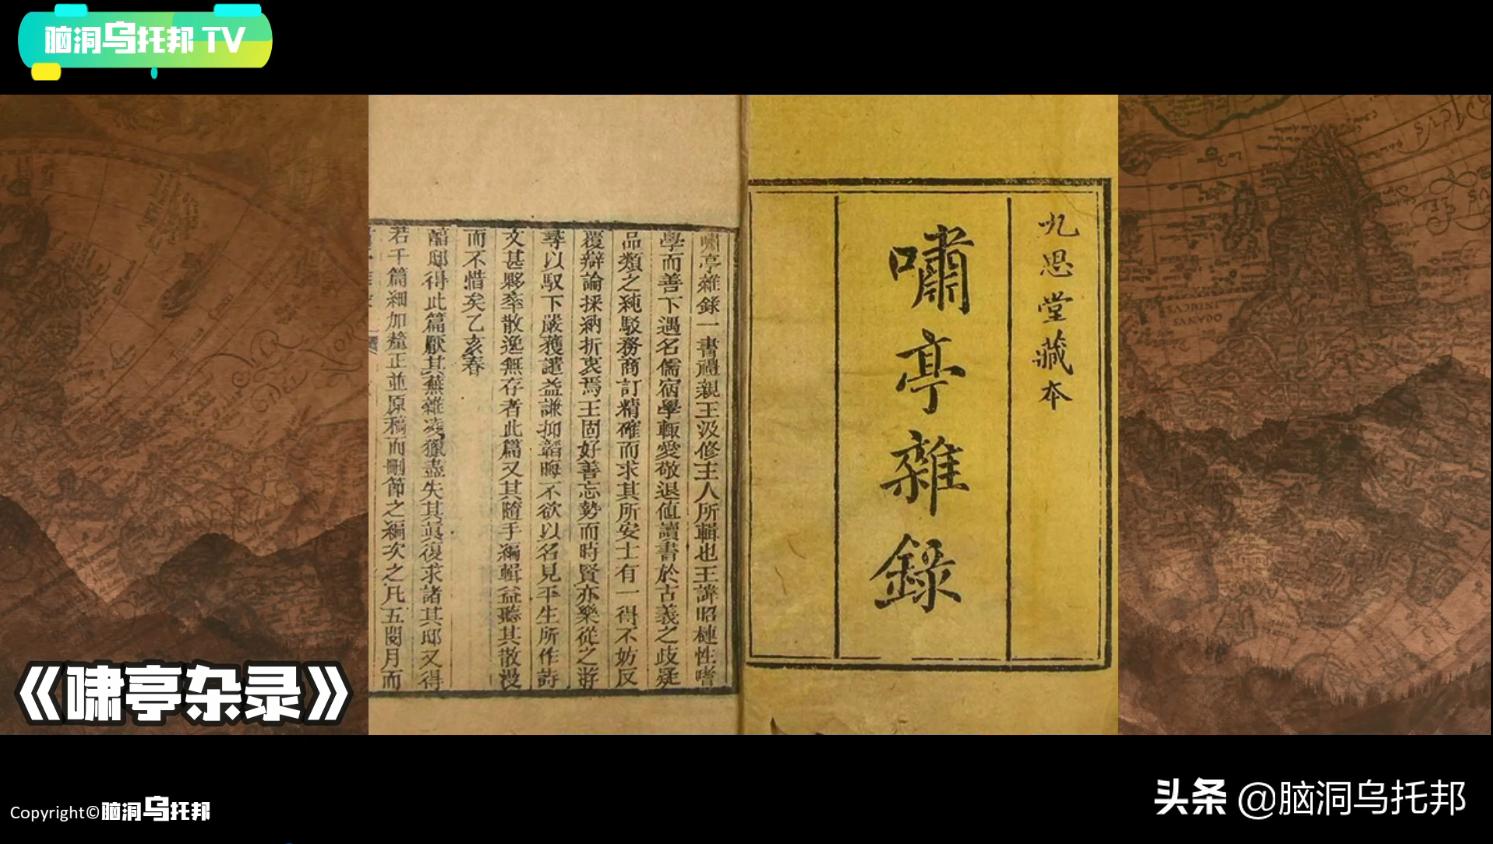 脑洞乌托邦 TV
九思堂藏本
嘯亭雜錄
嘯亭雜錄一書禮親王汲修主人所輯也王諱昭槤性嗜
學而善下遇名儒宿學輒愛敬退值讀書於古義之歧疑
品類之純駁務商訂精確而求其所安士有一得不妨反
覆辯論採納折衷焉王固好善忘勢而時賢亦樂從之游
尋以馭下嚴獲譴益謙抑韜晦不欲以名見平生所作詩
文甚夥率散逸無存者此篇又其隨手編輯益聽其散漫
而不惜矣乙亥春
醕邸得此篇厭其蕪雜凌獵盡失其眞復求諸其邸又得
若干篇細加釐正並原稿而刪節之編次之凡五閱月而
《啸亭杂录》
Copyright©脑洞乌托邦
头条 @脑洞乌托邦